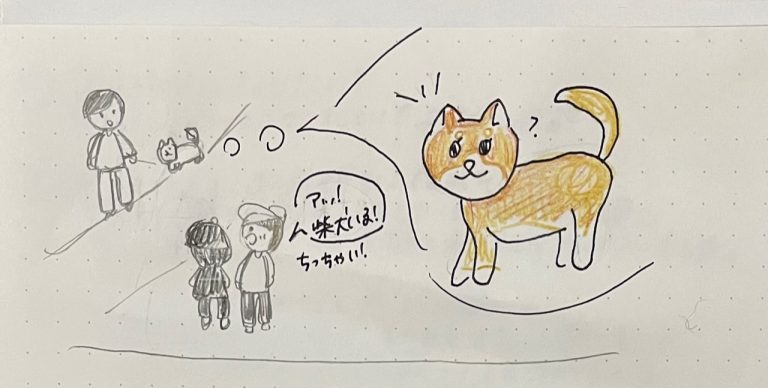 アッ!
柴犬いる!
ちっちゃい!
?